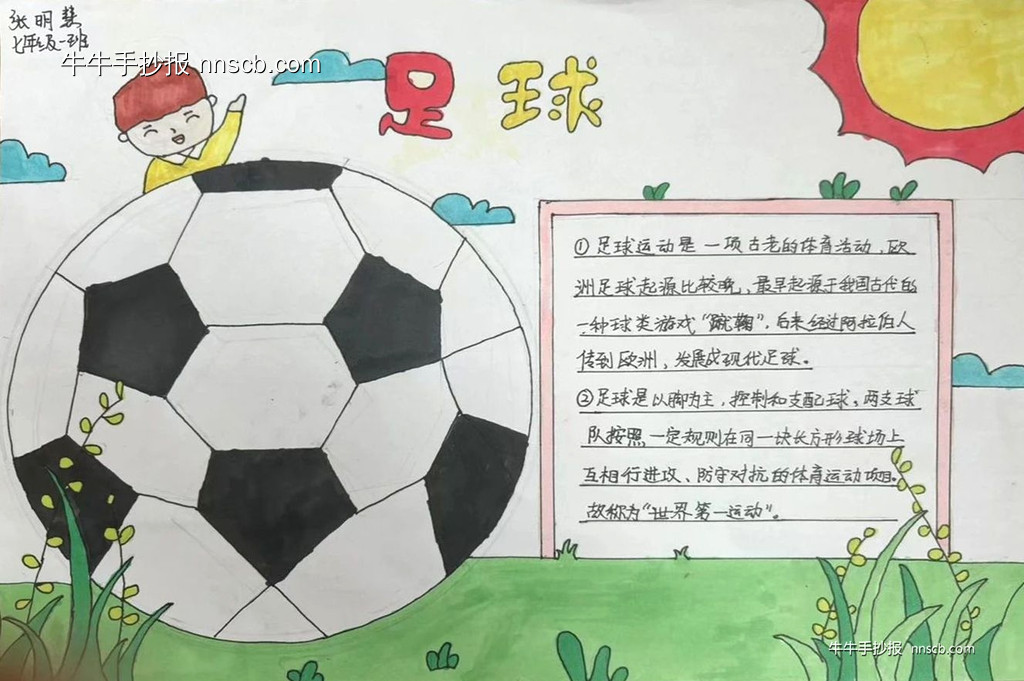 张明慧
七年级一班
牛牛手抄报 nnscb.com
足球
①足球运动是一项古老的体育活动，欧
洲足球起源比较晚，最早起源于我国古代的
一种球类游戏“蹴鞠”，后来经过阿拉伯人
传到欧洲，发展成现代足球。
②足球是以脚为主，控制和支配球，两支球
队按照一定规则在同一块长方形球场上
互相行进攻、防守对抗的体育运动项目。
故称为“世界第一运动”。
牛牛手抄报 nnscb.com